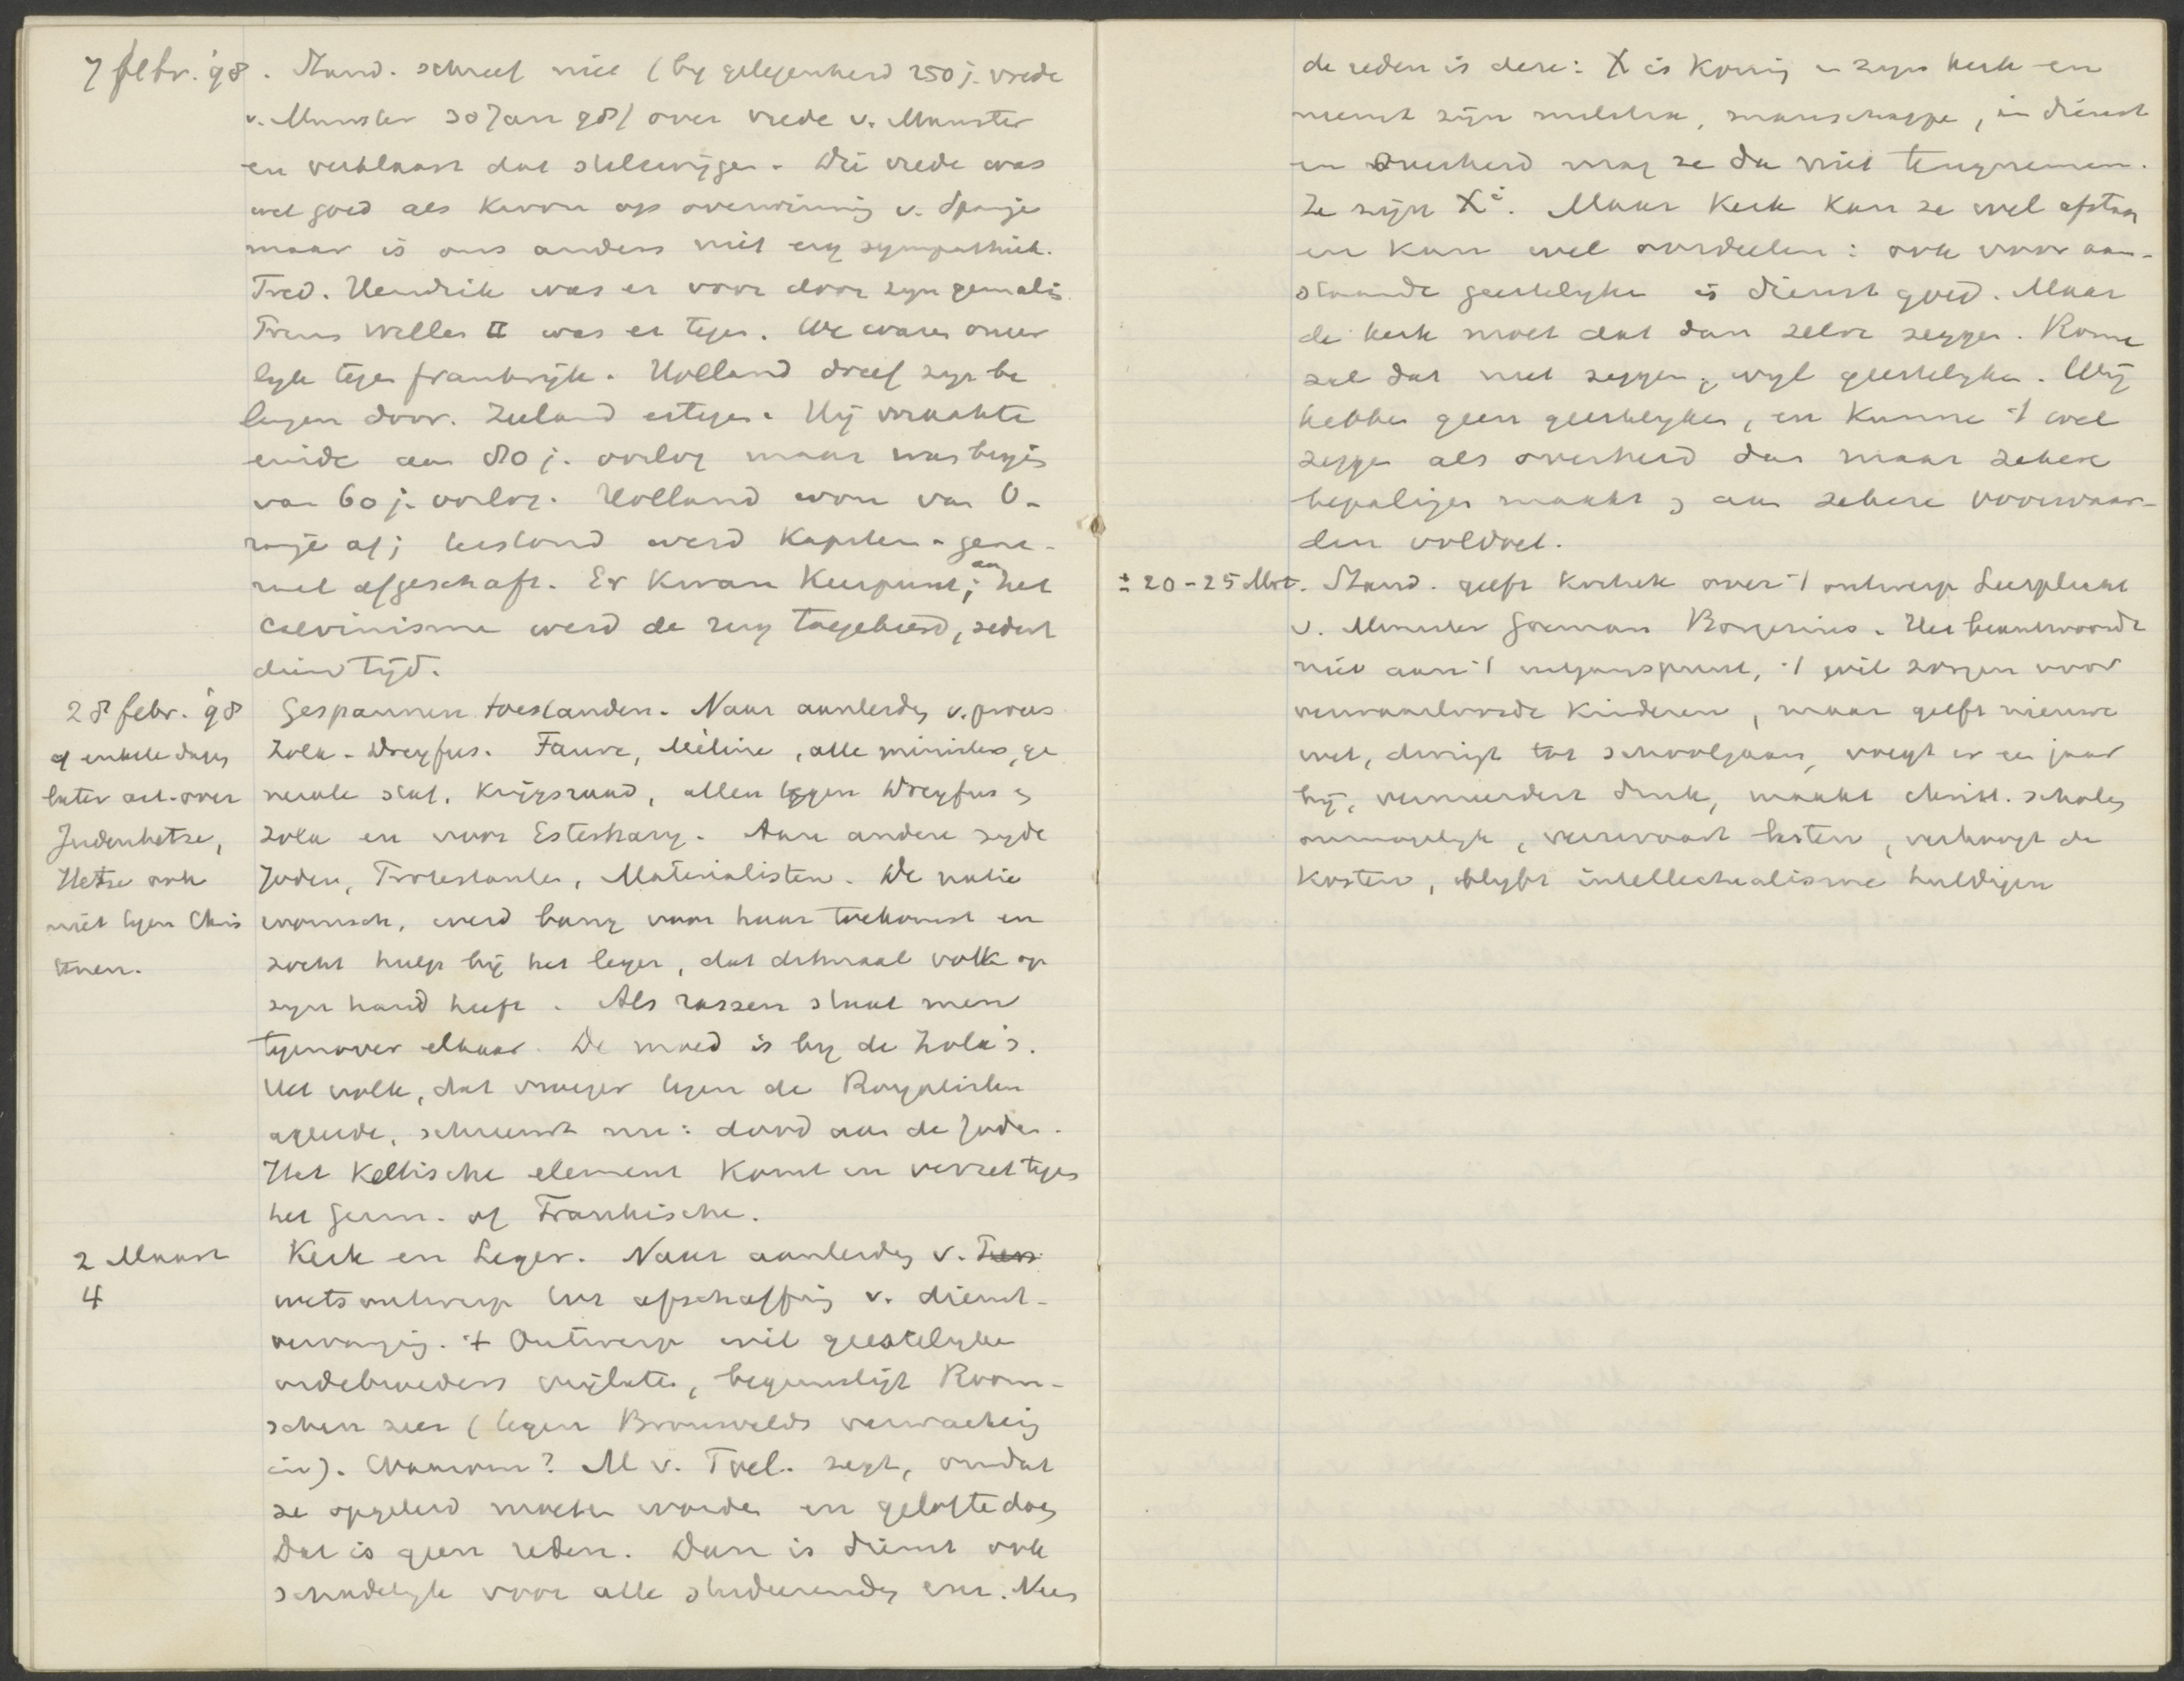 7 febr. '98. Stand. schreef niet (by gelegenheid 250 j. vrede
v. Munster 30 Jan 98) over vrede v. Munster
en verklaart dat stilzwijgen. Die vrede was
wel goed als kroon op overwinning v. Spanje
maar is ons anders niet erg sympathiek.
Fred. Hendrik was er voor door zyn gemalin
Prins Willem II was er tegen. We waren onver
lyk tegen frankrijk. Holland dreef zyn be
langen door. Zeeland ertegen. Hij maakte
einde aan 80 j. oorlog maar was begin
van 60 j. oorlog. Holland won van O-
ranje af; leesland werd kapitein-gene-
raal afgeschaft. Er kwam keerpunt; aan het
Calvinisme werd de rug toegekeerd, sedert
dien tijd.
28 febr. '98
of enkele dagen
later art. over
Judenhetze,
Hetze ook
niet tegen Chris
tenen.
Gespannen toestanden. Naar aanleiding v. proces
Zola-Dreyfus. Faure, Méline, alle ministers, ge
nerale staf, Krijgsraad, allen tegen Dreyfus &
Zola en voor Esterhazy. Aan andere zyde
Joden, Protestanten, Materialisten. De natie
wakker, werd bang voor haar toekomst en
zocht hulp bij het leger, dat ditmaal volk op
zyn hand heeft. Als rassen staat men
tegenover elkaar. De moed is by de Zola's.
Het volk, dat vroeger tegen de Royalisten
ageerde, schreeuwt nu: dood aan de Joden.
Het Keltische element komt in verzet tegen
het Germ. of Frankische.
2 Maart
4
Kerk en Leger. Naar aanleiding v.
wetsontwerp tot afschaffing v. dienst-
vervanging. 't Ontwerp wil geestelyke
ordebroeders vrijlaten, begunstigt Room-
schen zeer (tegen Bronsvelds verwachting
in). Waarom? M v. Toel. zegt, omdat
ze opgeleid moeten worden en gelofte doen
Dat is geen reden. Dan is dienst ook
schadelyk voor alle studeerenden enz. Nee
de reden is deze: X is Koning in zyn kerk en
neemt zijn militie, manschappen, in dienst
en Overheid mag ze du niet terugnemen.
Ze zijn Xi. Maar Kerk kan ze wel afstaan
en kan wel oordeelen: ook voor aan-
staande geestelyken is dienst goed. Maar
de kerk moet dat dan zelve zeggen. Rome
zal dat niet zeggen, wyl geestelyken. Wij
hebben geen geestelyken, en kunnen 't wel
zeggen als overheid dan maar zekere
bepalingen maakt & aan zekere voorwaar-
den voldoet.
± 20-25 Mrt. Stand. geeft kritiek over 't ontwerp Leerplicht
v. Minister Goeman Borgesius. Het beantwoordt
niet aan 't uitgangspunt, 't wil zorgen voor
verwaarloosde kinderen, maar geeft nieuwe
wet, dwingt tot schoolgaan, voegt er een jaar
bij, vermeerdert druk, maakt christ. scholen
onmogelyk, verzwaart lasten, verhoogt de
kosten, blyft intellectualisme huldigen